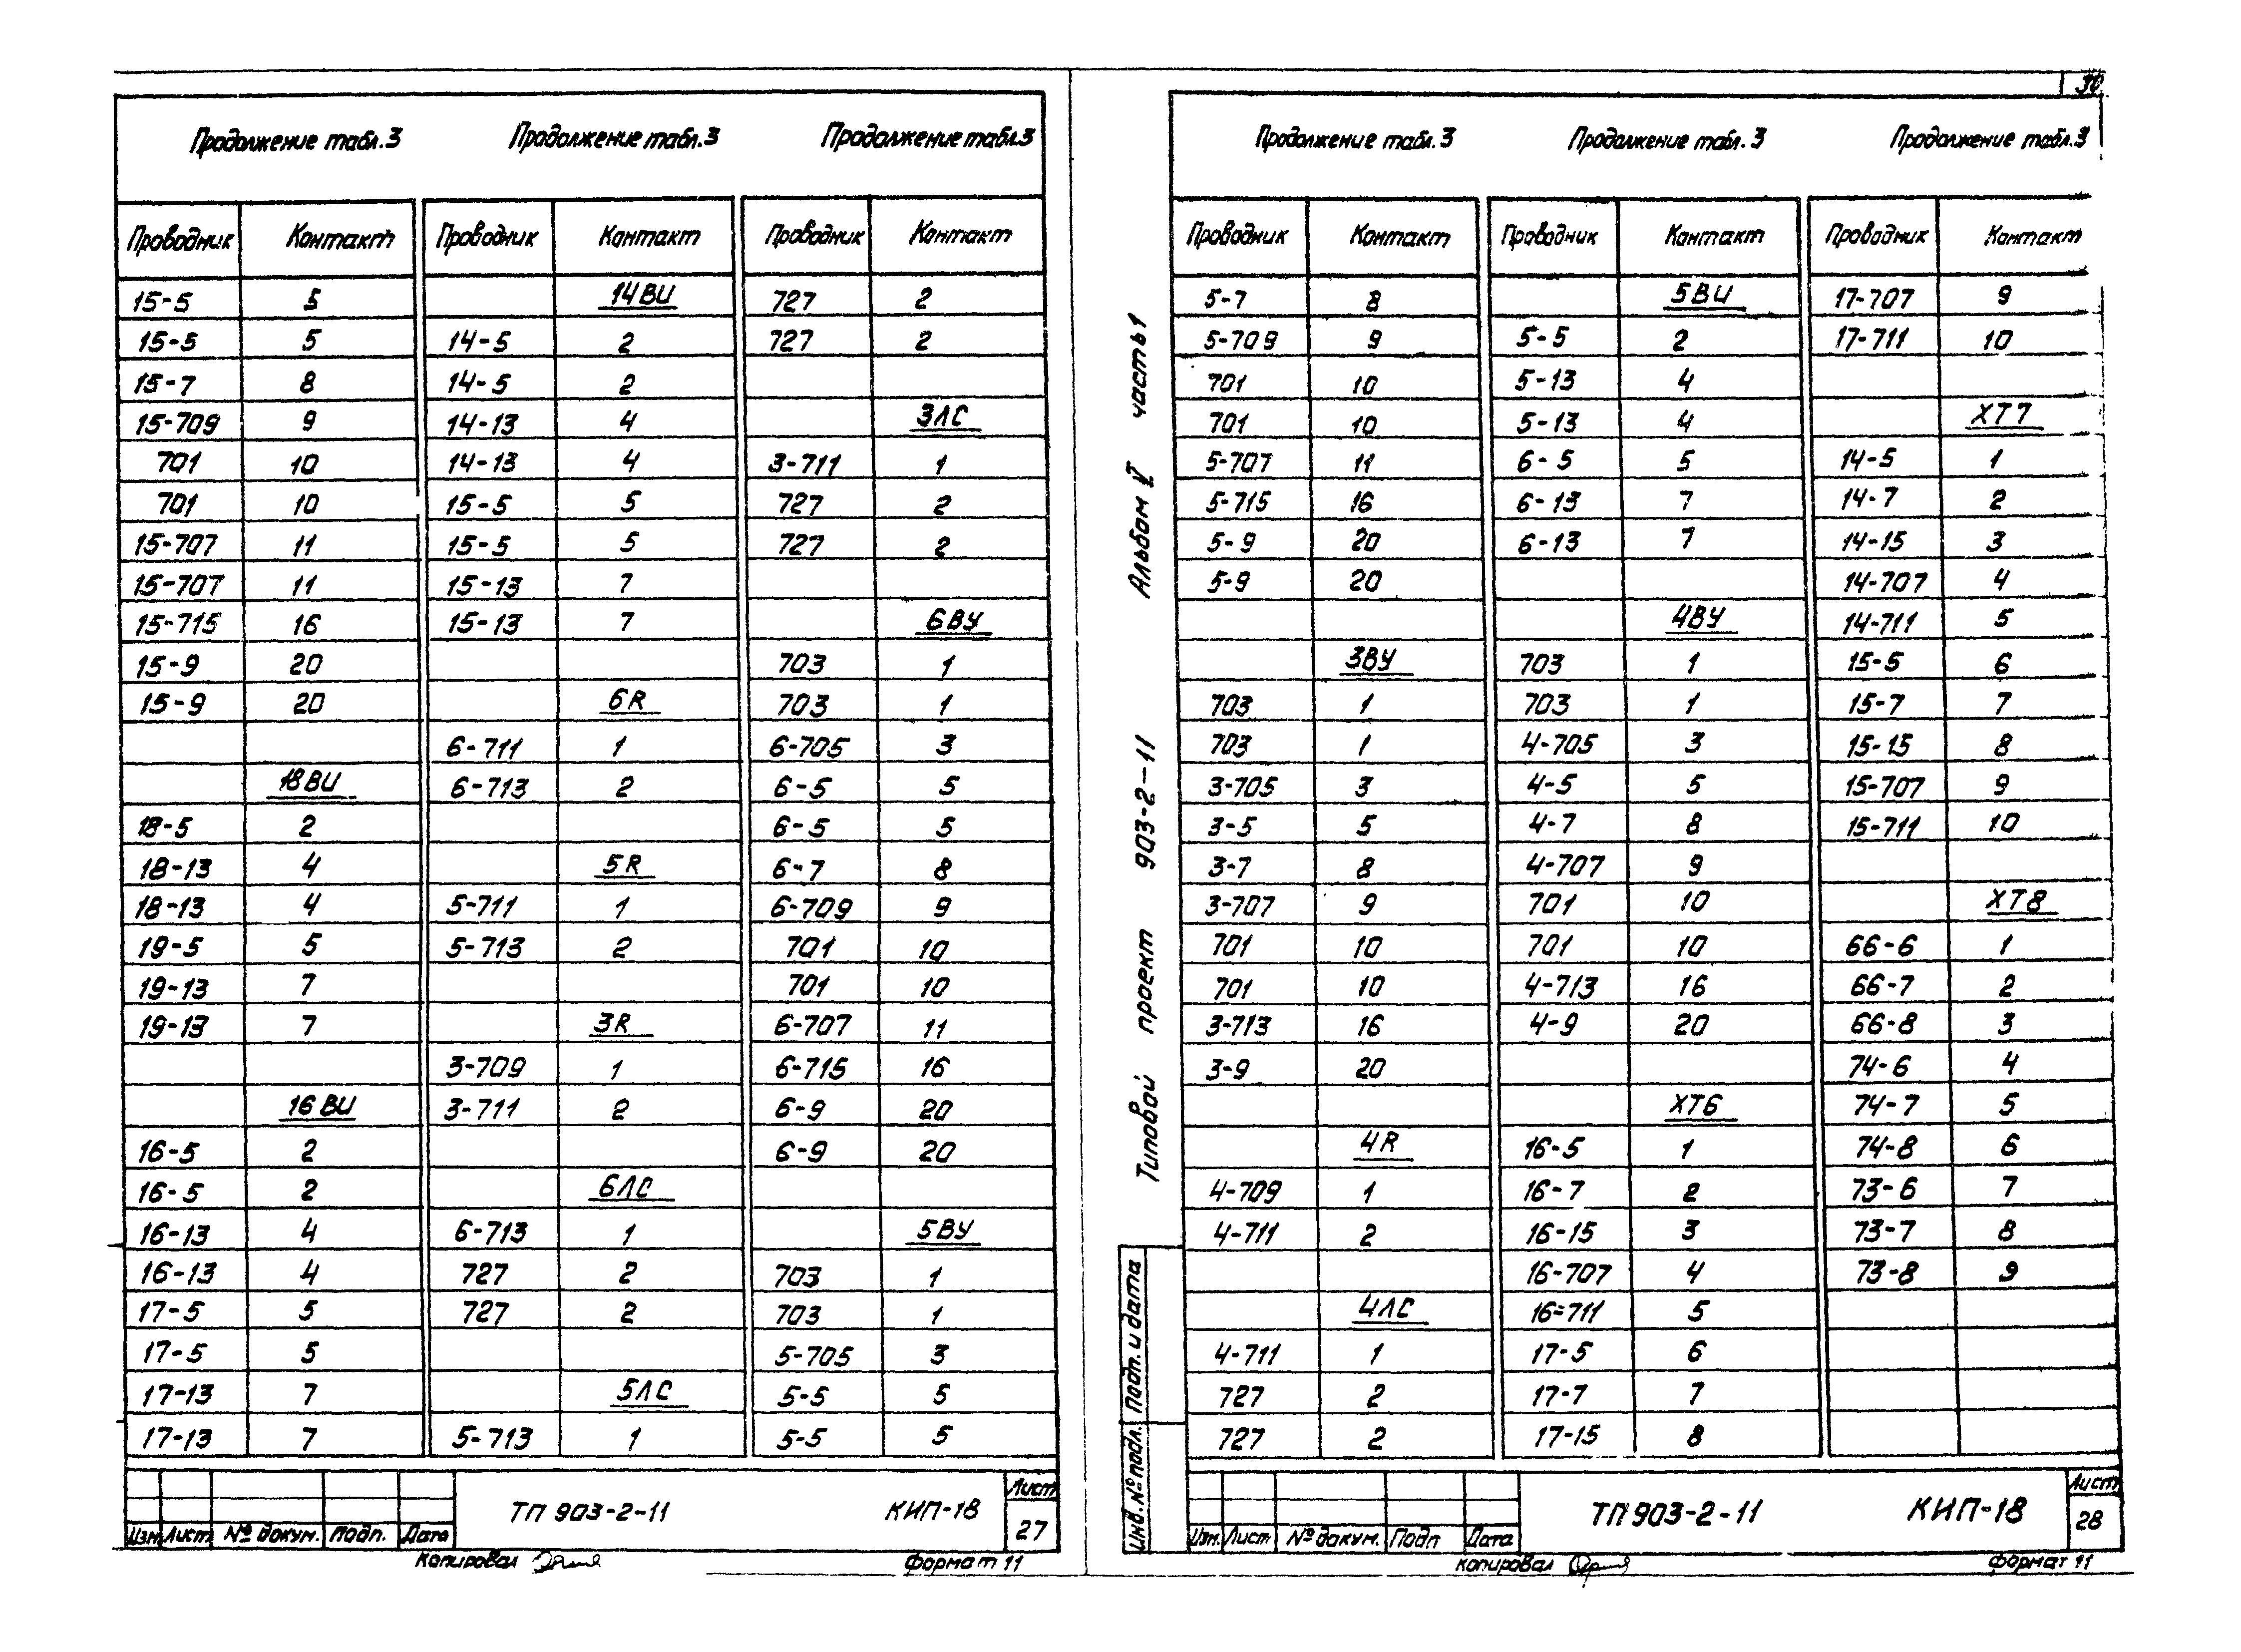 Продолжение табл.3 Продолжение табл.3 Продолжение табл.3
Проводник Контакт Проводник Контакт Проводник Контакт
15-5 5 14ВИ 727 2
15-5 5 14-5 2 727 2
15-7 8 14-5 2
15-709 9 14-13 4 3ЛС
701 10 14-13 4 3-711 1
701 10 15-5 5 727 2
15-707 11 15-5 5 727 2
15-707 11 15-13 7
15-715 16 15-13 7 6ВУ
15-9 20 703 1
15-9 20 6R 703 1
6-711 1 6-705 3
18ВИ 6-713 2 6-5 5
18-5 2 6-5 5
18-13 4 5R 6-7 8
18-13 4 5-711 1 6-709 9
19-5 5 5-713 2 701 10
19-13 7 701 10
19-13 7 3R 6-707 11
3-709 1 6-715 16
16ВИ 3-711 2 6-9 20
16-5 2 6-9 20
16-5 2 6ЛС
16-13 4 6-713 1 5ВУ
16-13 4 727 2 703 1
17-5 5 727 2 703 1
17-5 5 5-705 3
17-13 7 5ЛС 5-5 5
17-13 7 5-713 1 5-5 5
ТП 903-2-11 КИП-18 Лист
27
Изм Лист № докум. Подп. Дата
Копировал
формат 11
Продолжение табл.3 Продолжение табл.3 Продолжение табл.3
Проводник Контакт Проводник Контакт Проводник Контакт
5-7 8 5ВИ 17-707 9
5-709 9 5-5 2 17-711 10
701 10 5-13 4
701 10 5-13 4 ХТ7
5-707 11 6-5 5 14-5 1
5-715 16 6-13 7 14-7 2
5-9 20 6-13 7 14-15 3
5-9 20 14-707 4
4ВУ 14-711 5
3ВУ 703 1 15-5 6
703 1 703 1 15-7 7
703 1 4-705 3 15-15 8
3-705 3 4-5 5 15-707 9
3-5 5 4-7 8 15-711 10
3-7 8 4-707 9
3-707 9 701 10 ХТ8
701 10 701 10 66-6 1
701 10 4-713 16 66-7 2
3-713 16 4-9 20 66-8 3
3-9 20 74-6 4
ХТ6 74-7 5
4R 16-5 1 74-8 6
4-709 1 16-7 2 73-6 7
4-711 2 16-15 3 73-7 8
16-707 4 73-8 9
4ЛС 16=711 5
4-711 1 17-5 6
727 2 17-7 7
727 2 17-15 8
Типовой проект 903-2-11 Альбом V часть 1
Инв.№ подл. Подп. и дата
ТП 903-2-11 КИП-18 Лист
28
Изм. Лист № докум. Подп Дата
копировал
формат 11